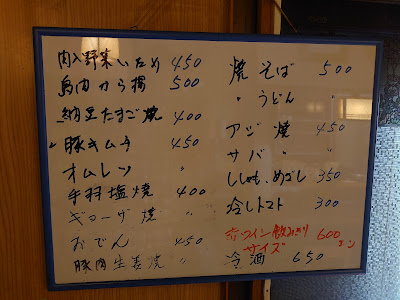 肉入野菜いため 450
鳥肉から揚 500
納豆たまご焼 400
豚キムチ 450
オムレツ 〃
手羽塩焼 400
ギョーザ焼 〃
おでん 450
豚肉生姜焼 〃
焼そば 500
〃 うどん 〃
アジ焼 450
サバ〃 〃
ししゃも、めざし 350
冷しトマト 300
赤ワイン飲みきりサイズ 600エン
冷酒 650